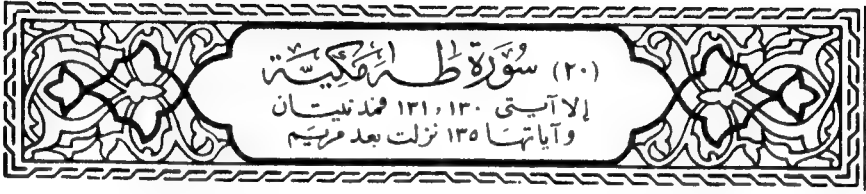 (٢٠) سُوۡرَة طَٰهٰ مَكِّيَّة
إلا آيتى ١٣٠ و ١٣١ فمدنيتان
وآياتها ١٣٥ نزلت بعد مريم